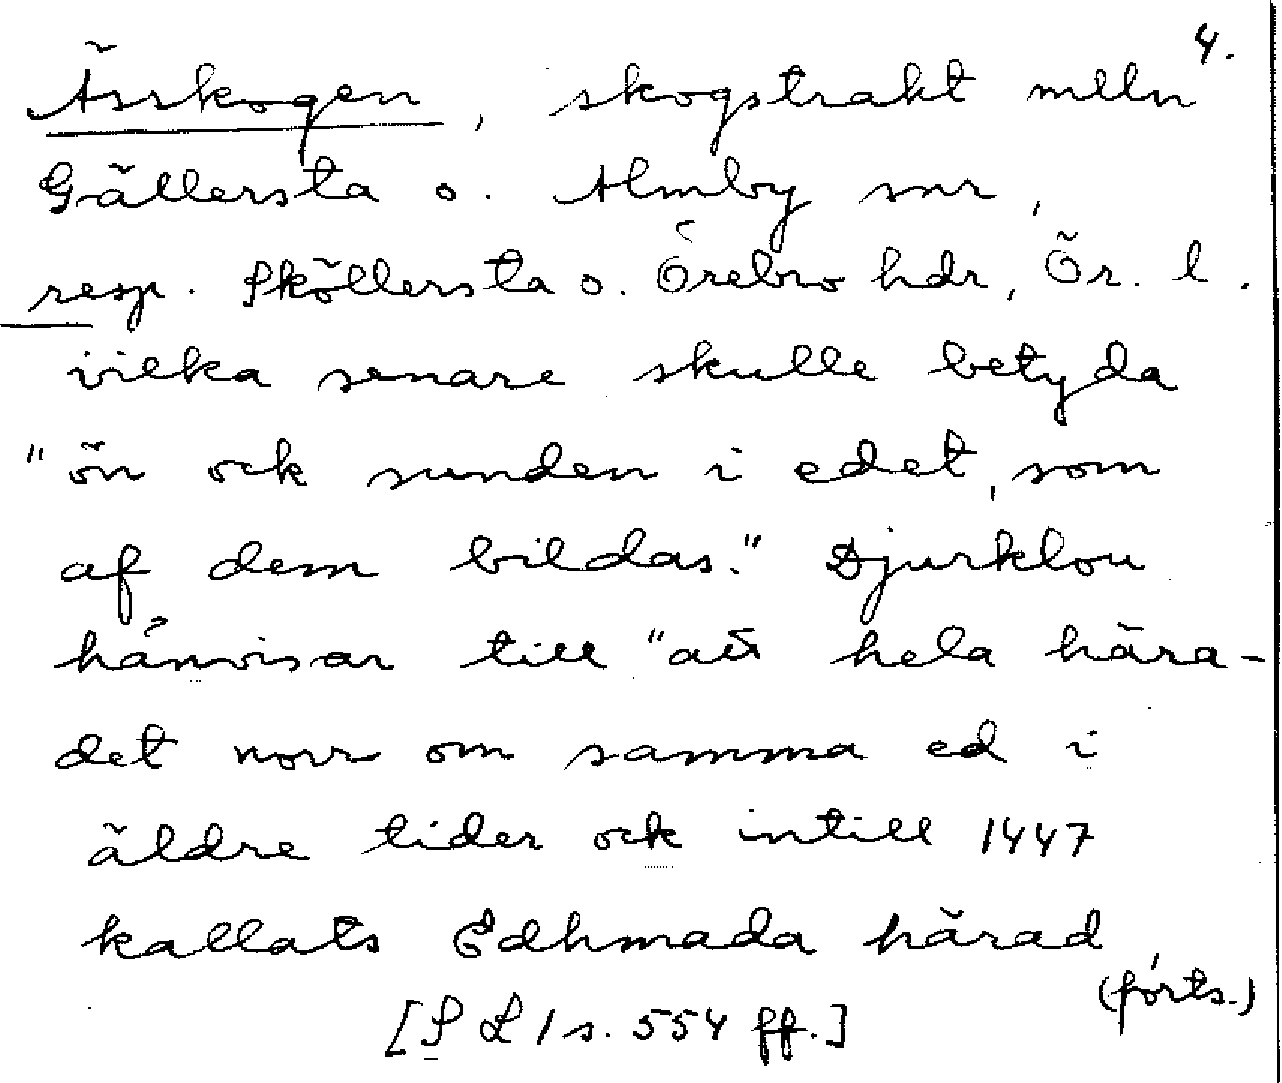 4.
Ässkogen, skogstrakt mlln
Gällersta o. Almby snr,
resp. Sköllersta o. Örebro hdr, Ör. l.
vilka senare skulle betyda
"ön ock sunden i edet, som
af dem bildas." Djurklou
hänvisar till "att hela hära-
det norr om samma ed i
äldre tider ock intill 1447
kallats Edhmada härad
(forts.)
[S L 1 s. 554 ff.]